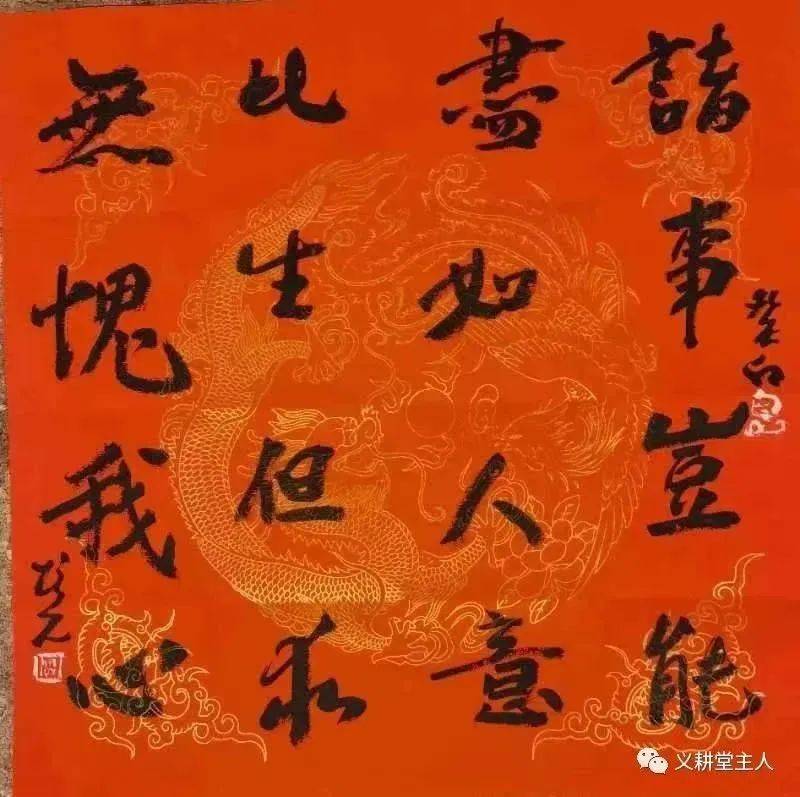 諸事豈能
盡如人意
此生但求
無愧我心
癸卯
义耕堂主人